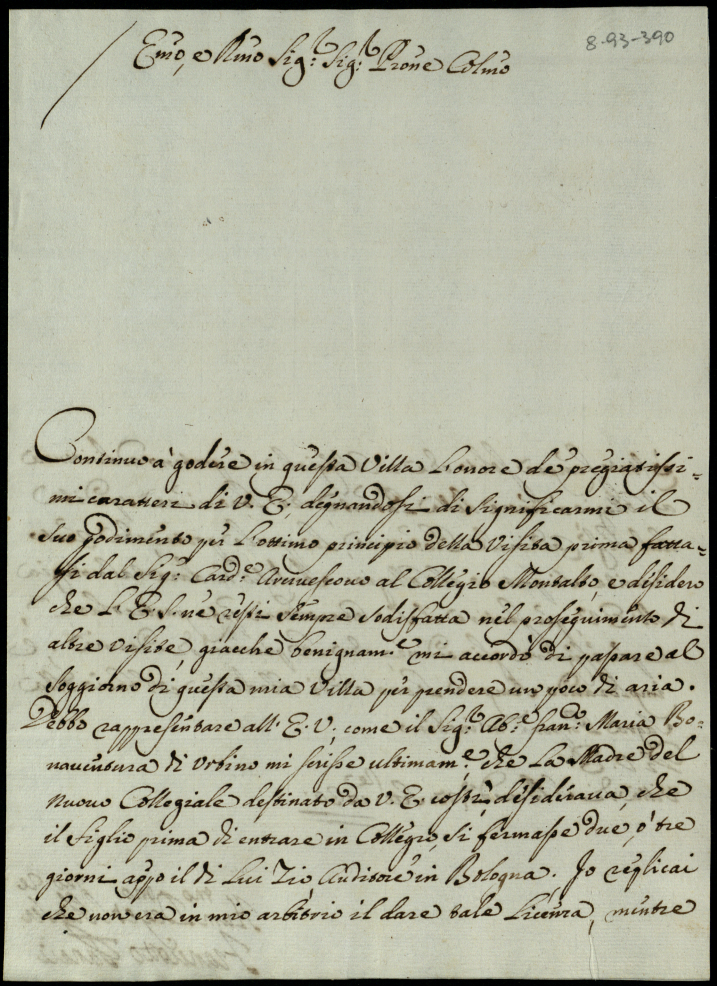 8-93-390
Emo, e Rmo Sig:r Sig:r Prone Colmo
Continuo à godere in questa Villa l'onore de pregiatissi-
mi caratteri di V. E., degnandosi di significarmi il
suo godimento per l'ottimo principio della Visita prima fatta-
si dal Sig:r Card:e Arcivescovo al Collegio Montalto, e desidero
che l'E. S. ne resti sempre sodisfatta nel proseguimento di
altre Visite, giacche benignam:e mi accordò di passare al
soggiorno di questa mia Villa per prendere un poco di aria.
Debbo rappresentare all'E. V. come il Sig:r Ab:e Fran:o Maria Bo-
naventura di Urbino mi scrisse ultimam:e che La Madre del
nuovo Collegiale destinato da V. E. costì, desiderava, che
il figlio prima di entrare in Collegio, si fermasse due, ò tre
giorni appo il di Lui Zio, Auditore in Bologna. Io replicai
che non era in mio arbitrio il dare tale Licenza, mentre